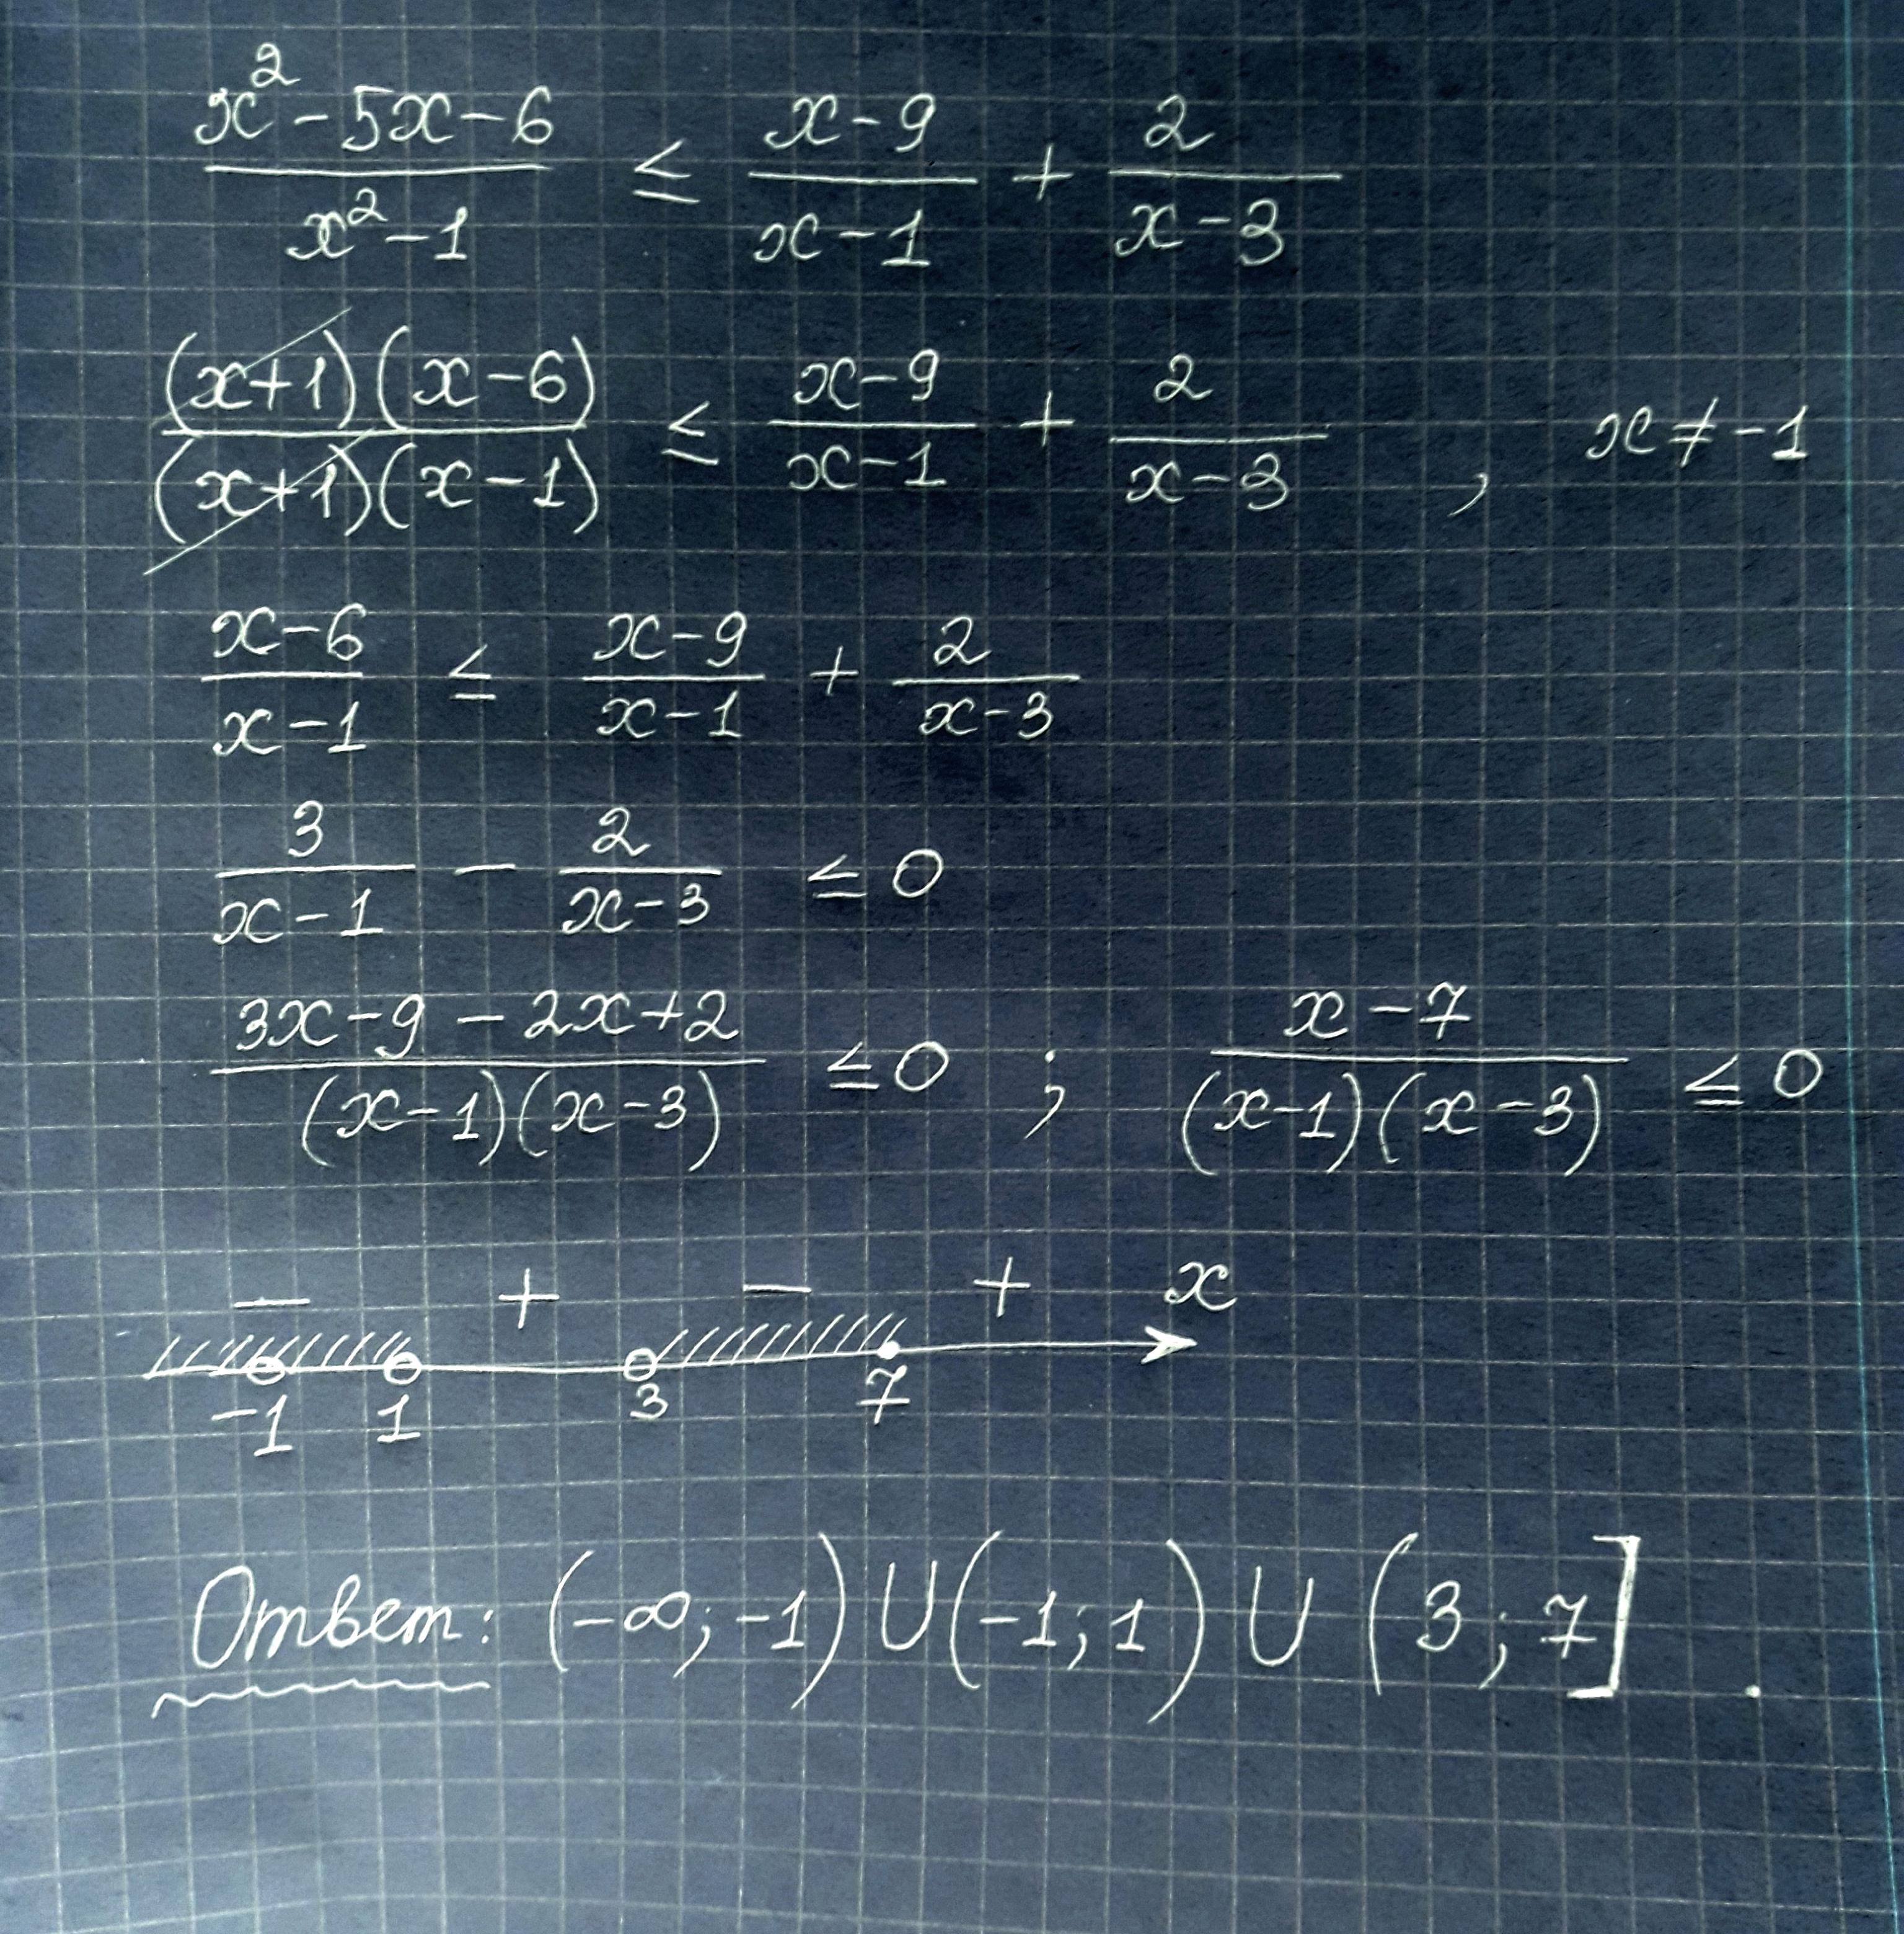 (x² - 5x - 6)/(x² - 1) ≤ (x - 9)/(x - 1) + 2/(x - 3)
((x+1)(x - 6))/((x+1)(x - 1)) ≤ (x - 9)/(x - 1) + 2/(x - 3) , x ≠ -1
(x - 6)/(x - 1) ≤ (x - 9)/(x - 1) + 2/(x - 3)
3/(x - 1) - 2/(x - 3) ≤ 0
(3x - 9 - 2x + 2)/((x - 1)(x - 3)) ≤ 0 ; (x - 7)/((x - 1)(x - 3)) ≤ 0
- + - + x
-1 1 3 7
Ответ: (-∞; -1) ∪ (-1; 1) ∪ (3; 7].